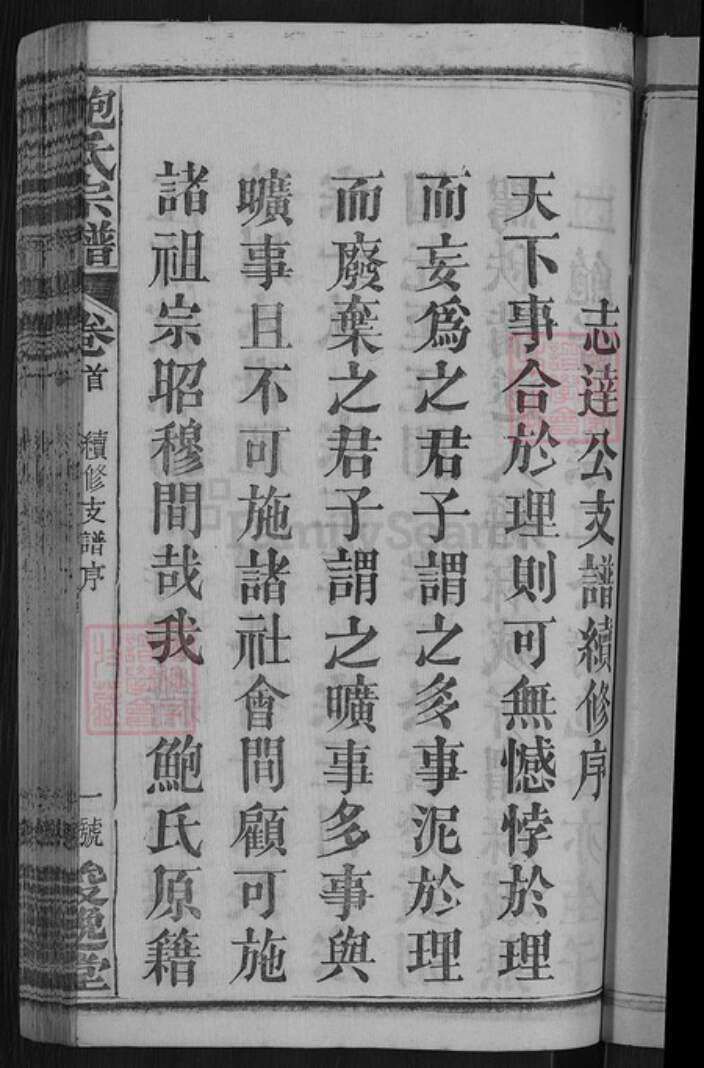 志達公支譜續修序
天下事合於理則可無憾悖於理
而妄爲之君子謂之多事泥於理
而廢棄之君子謂之曠事多事與
曠事且不可施諸社會間顧可施
諸祖宗昭穆間哉我 鮑氏原籍
鮑氏宗譜 卷首 續修支譜序 一號 堂
FamilySearch